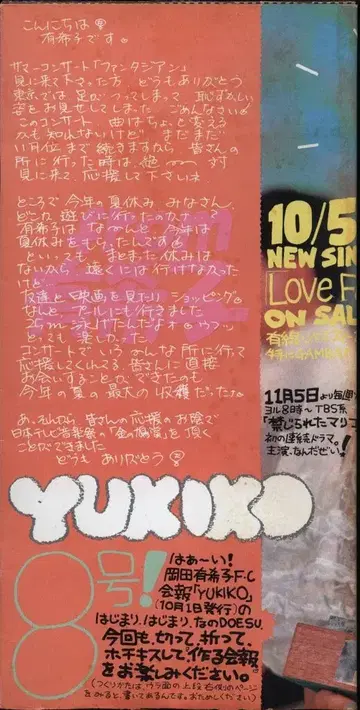 こんにちは
有希子です。
サマーコンサート「ファンタジアン」
見に来て下さった方、どうもありがとう
東京では足がつってしまって、恥ずかしい
姿をお見せしてしまった ごめんなさい
このコンサート、曲はちょっと変える
かも知れないけど まだまだ
11月位まで続きますから 皆さんの
所に行った時は、絶〜〜対
見に来て、応援して下さいね
ところで今年の夏休み みなさん、
どこか遊びに行ったのかナー?
有希子はな〜んと、今年は
夏休みをもらったんです
といっても、まとまった休みは
ないから 遠くには行けなかった
けど…
友達と映画を見たり ショッピング。
なんと プールにも行きました
25m泳げたんだよ
とっても楽しかった
コンサートでいろんな所に行って
応援してくれてる、皆さんに直接
お会いすることができたのも
今年の夏の最大の収穫だった。
あ、それから 皆さんの応援のお陰で
日本テレビ音楽祭の「金の鳩賞」を頂く
ことができました
どうもありがとう
YUKIKO
8号!
はぁーい!
岡田有希子F・C
会報「YUKIKO」
(10月1日発行)の
はじまり、はじまり、なのDOESU.
今回も、切って、折って、
ホチキスして。作る会報。
をお楽しみください。
(つくりかたは、ウラ面の上段右側のページ
をみると、書いてあるんです。おためしください)
10/5
NEW SIN
「Love F
ON SAL
11月5日より毎週
ヨル8時〜TBS系
「禁じられたマリコ
初の連続ドラマ。
主演、なんだぜい!